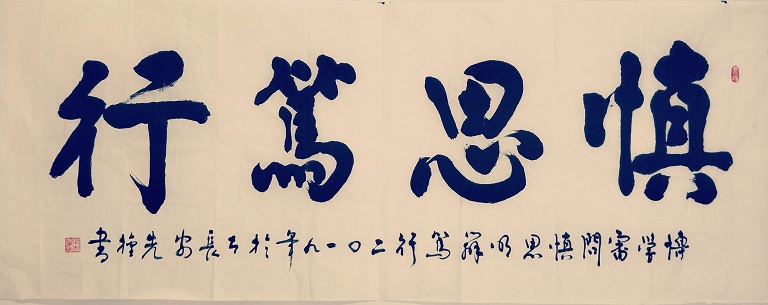 慎思篤行
博学審問慎思明辨篤行二〇一九年於古長安先書